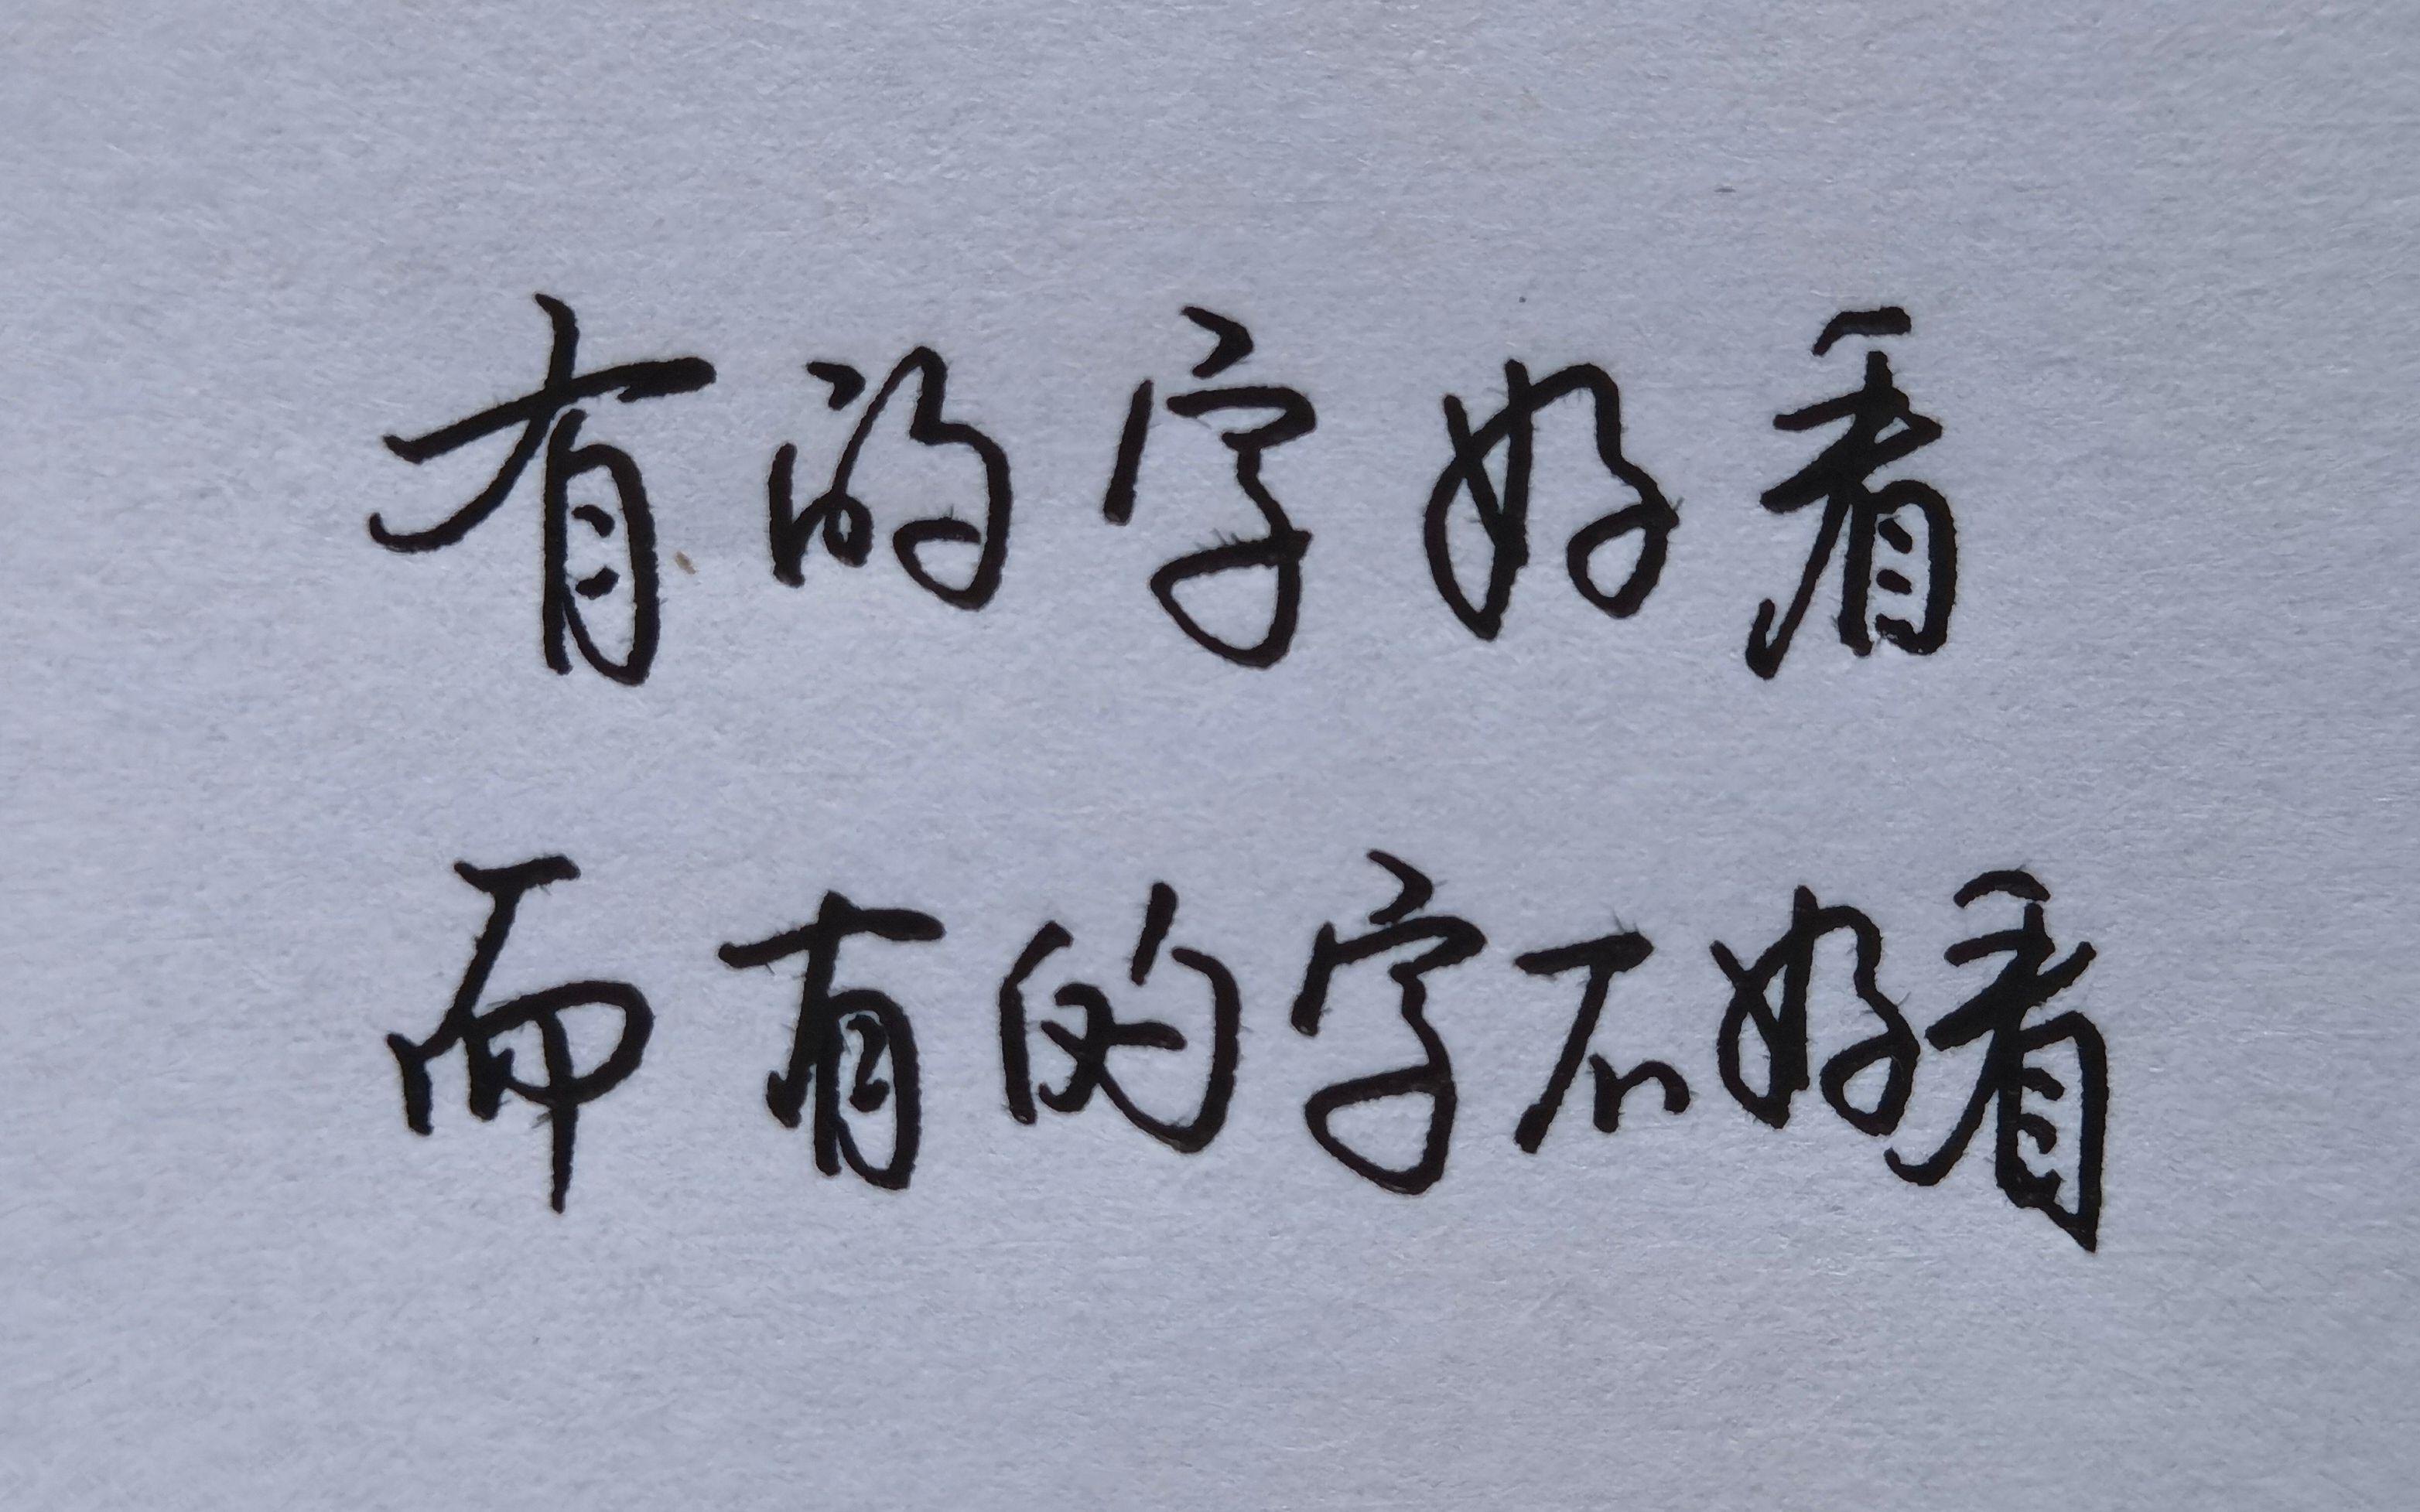 有的字好看
而有的字不好看